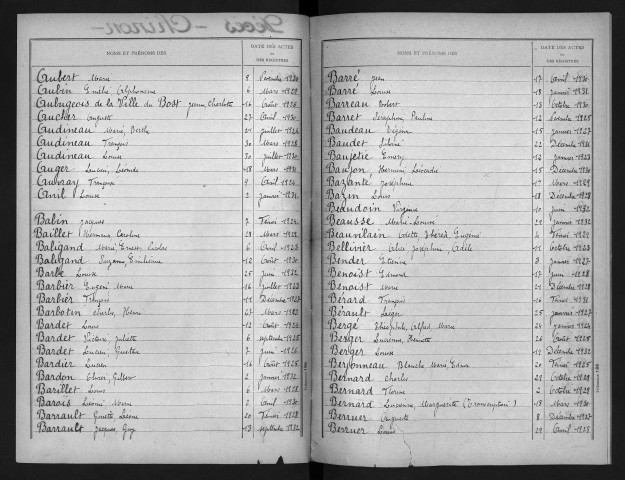 Décès - Chinon -
NOMS ET PRÉNOMS DES
DATE DES ACTES
ou
DES REGISTRES
Aubert Marie 9 Décembre 1930
Aubin Emilie Alphonsine 6 Mars 1929
Aubugeois de la Ville du Bost Jeanne, Charlotte 16 Août 1926
Aucher Auguste 27 Avril 1930
Audineau Marie, Berthe 21 Juillet 1926
Audineau François 30 Mars 1928
Audineau Louise 30 Juillet 1930
Auger Lucien, Léonide 18 Mars 1931
Auvray Françoise 9 Avril 1924
Avril Louise 2 Janvier 1931
Babin Jacques 7 Février 1924
Baillet Hermance Caroline 28 Mars 1929
Baligand Marie, Ernest, Nicolas 6 Avril 1923
Baligand Suzanne, Emilienne 10 Août 1930
Barbé Louise 25 Juin 1932
Barbier Eugène Marie 16 Juillet 1923
Barbier François 11 Décembre 1927
Barbotin Charles, Henri 27 Mars 1923
Bardet Louis 12 Août 1926
Bardet Victoire, Juliette 6 Septembre 1925
Bardet Lucien, 7 Juin 1926
Bardier Lucien 16 Août 1925
Bardon Olivier, Gilbert 2 Janvier 1932
Barillet Louis 6 Mars 1928
Barois Léonie Marie 2 Avril 1930
Barrault Ginette, Liliane 20 Février 1928
Barrault Jacques, Guy 13 Septembre 1932
NOMS ET PRÉNOMS DES
DATE DES ACTES
ou
DES REGISTRES
Barré Jean 17 Avril 1930
Barré Louise 18 Janvier 1931
Barreau Robert 13 Octobre 1930
Barret Séraphine, Pauline 12 Décembre 1925
Baudeau Eugène 15 Janvier 1927
Baudet Silvine 22 Décembre 1931
Baujetie Emery 12 Janvier 1923
Baujon Hermine, Léocadie 15 Décembre 1930
Bazanté Joséphine 17 Mars 1929
Bazin Louis 18 Décembre 1928
Beaudoin Virginie 10 Juin 1932
Beausse Marie-Louise 22 Janvier 1932
Beauvilain Odette, Thérèse, Eugénie 4 Février 1929
Bellivier Alice Joséphine, Adèle 11 Octobre 1923
Bender Etienne 3 Janvier 1927
Benoist Edmond 17 Juin 1928
Benoist Marie 21 Décembre 1928
Bérard François 16 Février 1931
Bérault Léger 25 Janvier 1927
Bergé Théophile, Alfred, Marie 24 Janvier 1924
Berger Lucienne, Henriette 26 Août 1925
Berger Louise 19 Décembre 1932
Bergonneau Blanche Marie, Edma 20 Février 1925
Bernard Charles 29 Octobre 1929
Bernard Florine 2 Octobre 1929
Bernard Lucienne, Marguerite (Transcription) 18 Mars 1930
Berruer Auguste 8 Décembre 1927
Berruer Louis 29 Avril 1928